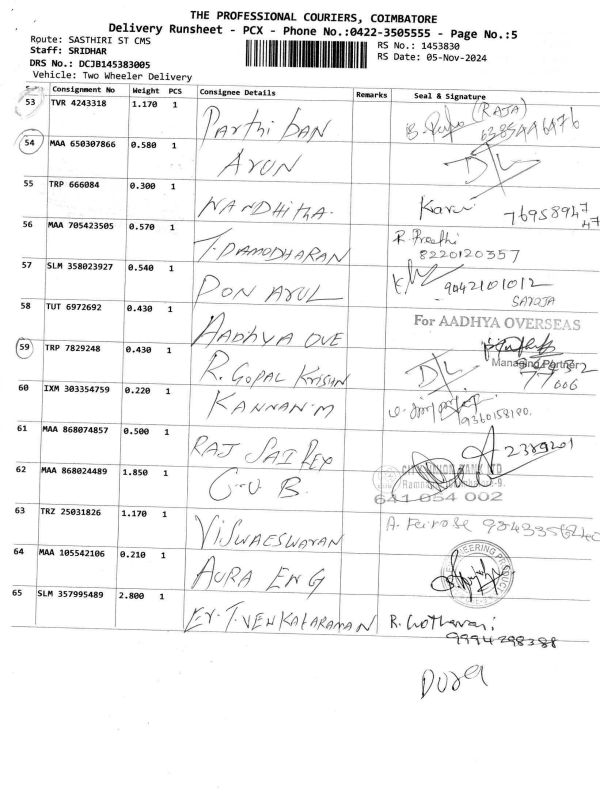 THE PROFESSIONAL COURIERS, COIMBATORE
Delivery Runsheet - PCX - Phone No.:0422-3505555 - Page No.:5
Route: SASTHIRI ST CMS
RS No.: 1453830
Staff: SRIDHAR
RS Date: 05-Nov-2024
DRS No.: DCJB145383005
Vehicle: Two Wheeler Delivery
Consignment No Weight PCS Consignee Details Remarks Seal & Signature
53 TVR 4243318 1.170 1 Parthi ban (RAJA)
54 MAA 650307866 0.580 1 ARUN D/L
55 TRP 666084 0.300 1 NANDHitha.
56 MAA 705423505 0.570 1 T. DAMODHARAN R. Preethi
8220120357
57 SLM 358023927 0.540 1 PON ARUL 9042101012
SAROJA
58 TUT 6972692 0.430 1 AADHYA OVE For AADHYA OVERSEAS
Managing Partner
59 TRP 7829248 0.430 1 R. GOPAL KRISHN D/L
60 IXM 303354759 0.220 1 KANNAN.M 9360158190.
61 MAA 868074857 0.500 1 RAJ SAI REX
62 MAA 868024489 1.850 1 C.U.B.
641 054 002
63 TRZ 25031826 1.170 1 VISWAESWARAN A. Feirose
64 MAA 105542106 0.210 1 AURA ENG
65 SLM 357995489 2.800 1 ER. T. VENKATARAMAN
9994298388